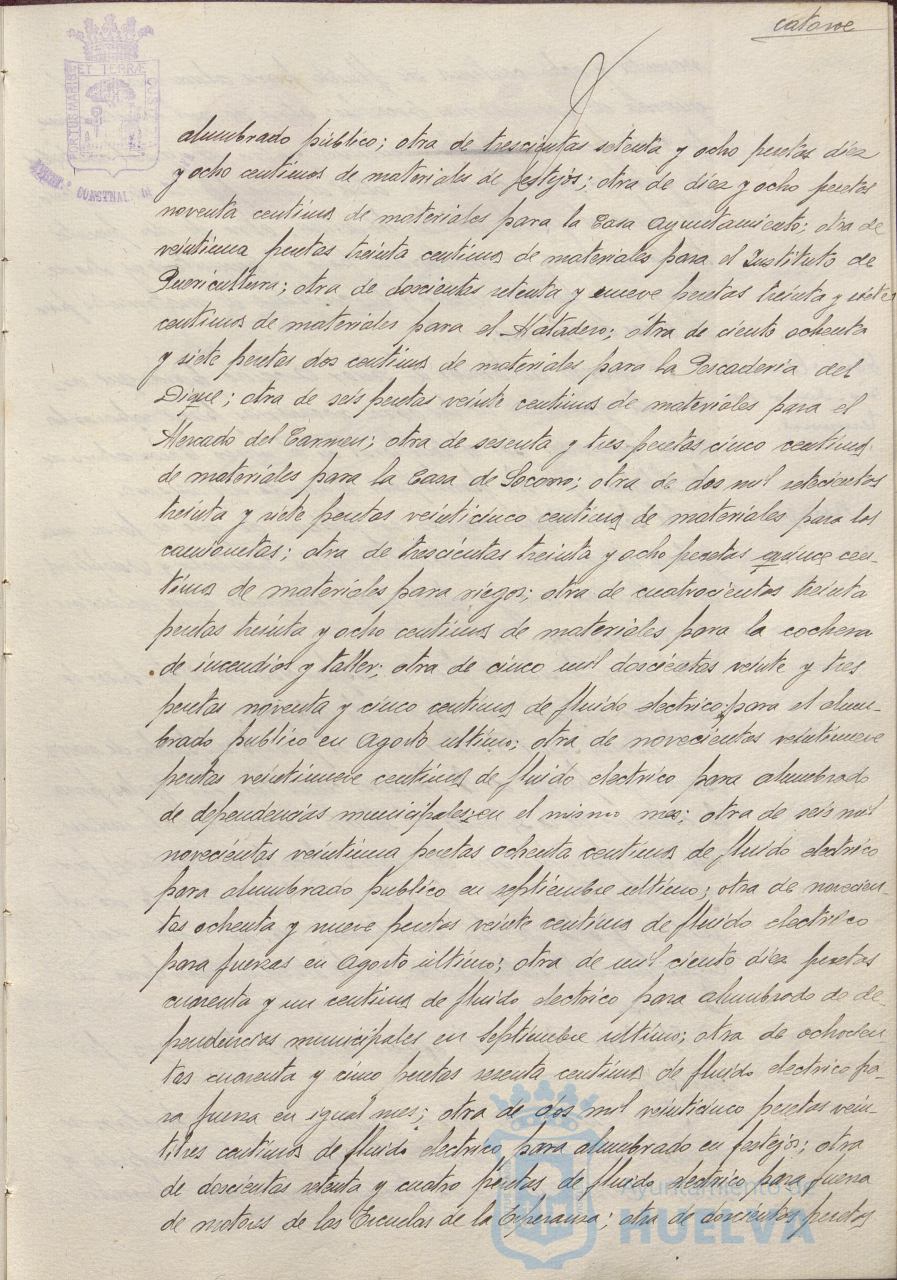 catorce
alumbrado público; otra de trescientas setenta y ocho pesetas diez
y ocho centimos de materiales de festejos; otra de diez y ocho pesetas
noventa centimos de materiales para la Casa Ayuntamiento; otra de
veintiuna pesetas treinta centimos de materiales para el Instituto de
Puericultura; otra de doscientas setenta y nueve pesetas treinta y siete
centimos de materiales para el Matadero; otra de ciento ochenta
y siete pesetas dos centimos de materiales para la Pescaderia del
Dique; otra de seis pesetas veinte centimos de materiales para el
Mercado del Carmen; otra de sesenta y tres pesetas cinco centimos
de materiales para la Casa de Socorro; otra de dos mil setecientas
treinta y siete pesetas veinticinco centimos de materiales para las
camionetas; otra de trescientas treinta y ocho pesetas quince cen-
timos de materiales para riegos; otra de cuatrocientas treinta
pesetas treinta y ocho centimos de materiales para la cochera
de incendios y taller; otra de cinco mil doscientas veinte y tres
pesetas noventa y cinco centimos de fluido electrico para el alum-
brado publico en Agosto ultimo; otra de novecientas veintinueve
pesetas veintinueve centimos de fluido electrico para alumbrado
de dependencias municipales en el mismo mes; otra de seis mil
novecientas veintiuna pesetas ochenta centimos de fluido electrico
para alumbrado publico en septiembre ultimo; otra de novecien-
tas ochenta y nueve pesetas veinte centimos de fluido electrico
para fuerzas en Agosto ultimo; otra de mil ciento diez pesetas
cuarenta y un centimos de fluido electrico para alumbrado de de-
pendencias municipales en Septiembre ultimo; otra de ochocien-
tas cuarenta y cinco pesetas sesenta centimos de fluido electrico pa-
ra fuerza en igual mes; otra de dos mil veinticinco pesetas vein-
titres centimos de fluido electrico para alumbrado en festejos; otra
de doscientas setenta y cuatro pesetas de fluido electrico para fuerza
de motores de las Escuelas de la Esperanza; otra de doscientas pesetas
PORTUS MARIS ET TERRÆ CUSTODIA
Ayuntamiento de
HUELVA